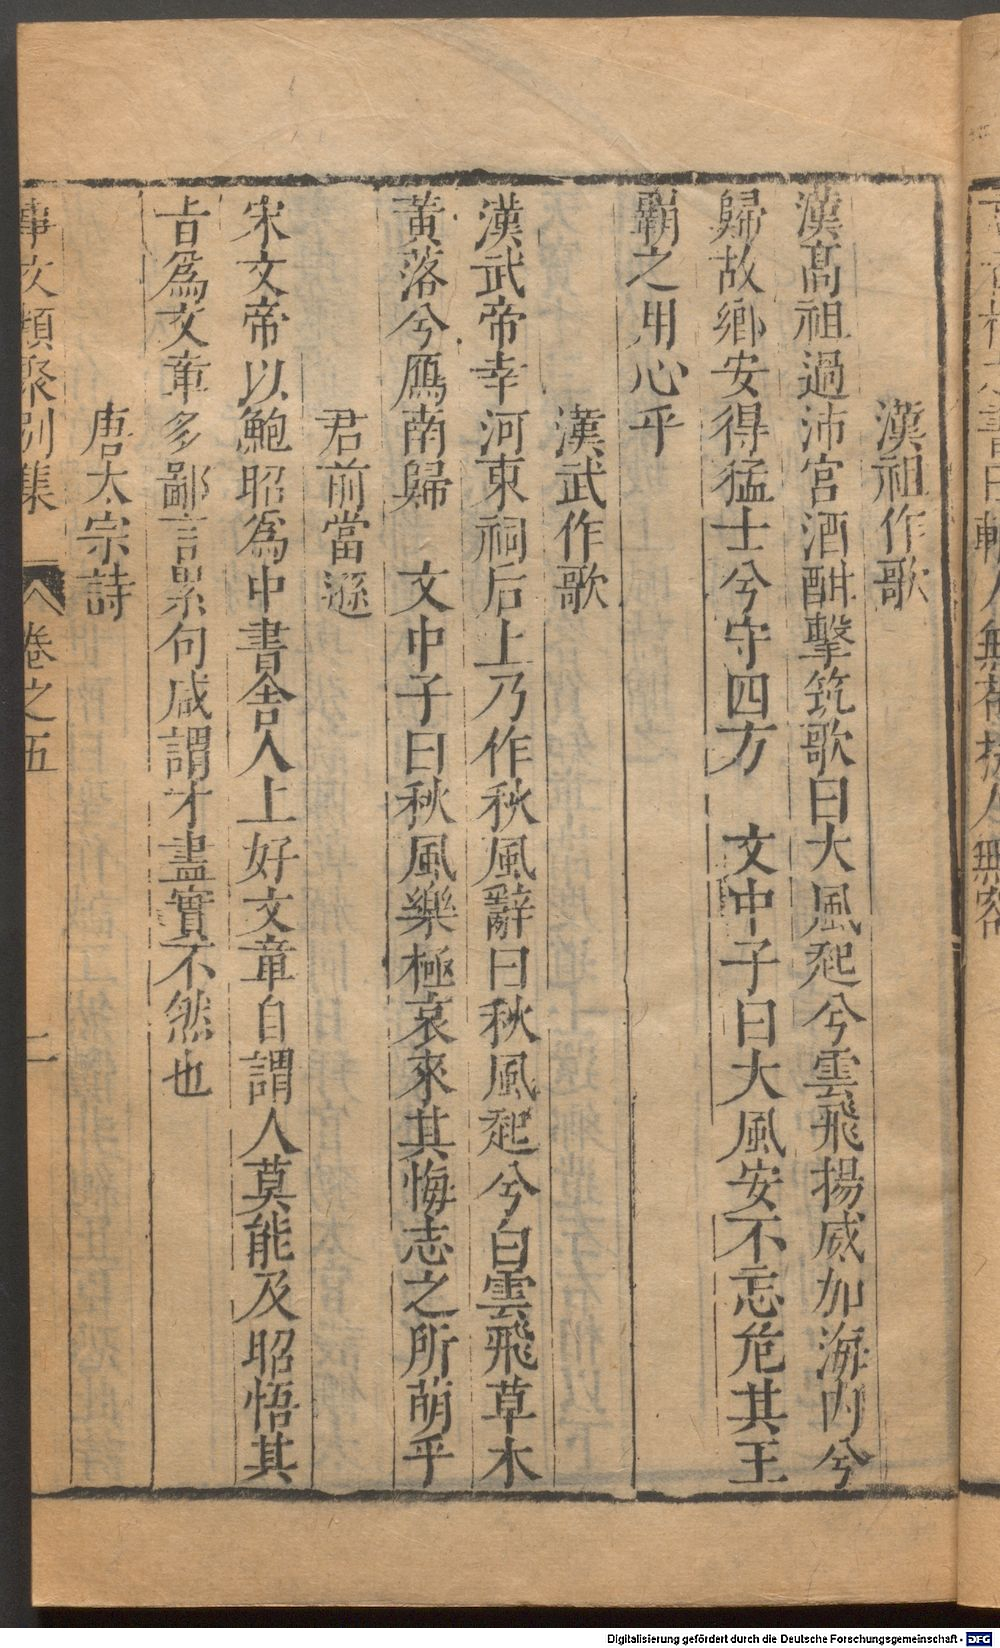 漢祖作歌
漢髙祖過沛宫酒酣擊筑歌曰大風起兮雲飛揚威加海内兮
歸故鄉安得猛士兮守四方　文中子曰大風安不忘危其王
霸之用心乎
漢武作歌
漢武帝幸河東祠后土乃作秋風辭曰秋風起兮白雲飛草木
黄落兮鴈南歸　文中子曰秋風樂極哀來其悔志之所萌乎
君前當遜
宋文帝以鮑昭爲中書舎人上好文章自謂人莫能及昭悟其
旨爲文章多鄙言累句咸謂才盡實不然也
唐太宗詩
事文類聚別集　卷之五　二
Digitalisierung gefördert durch die Deutsche Forschungsgemeinschaft - DFG